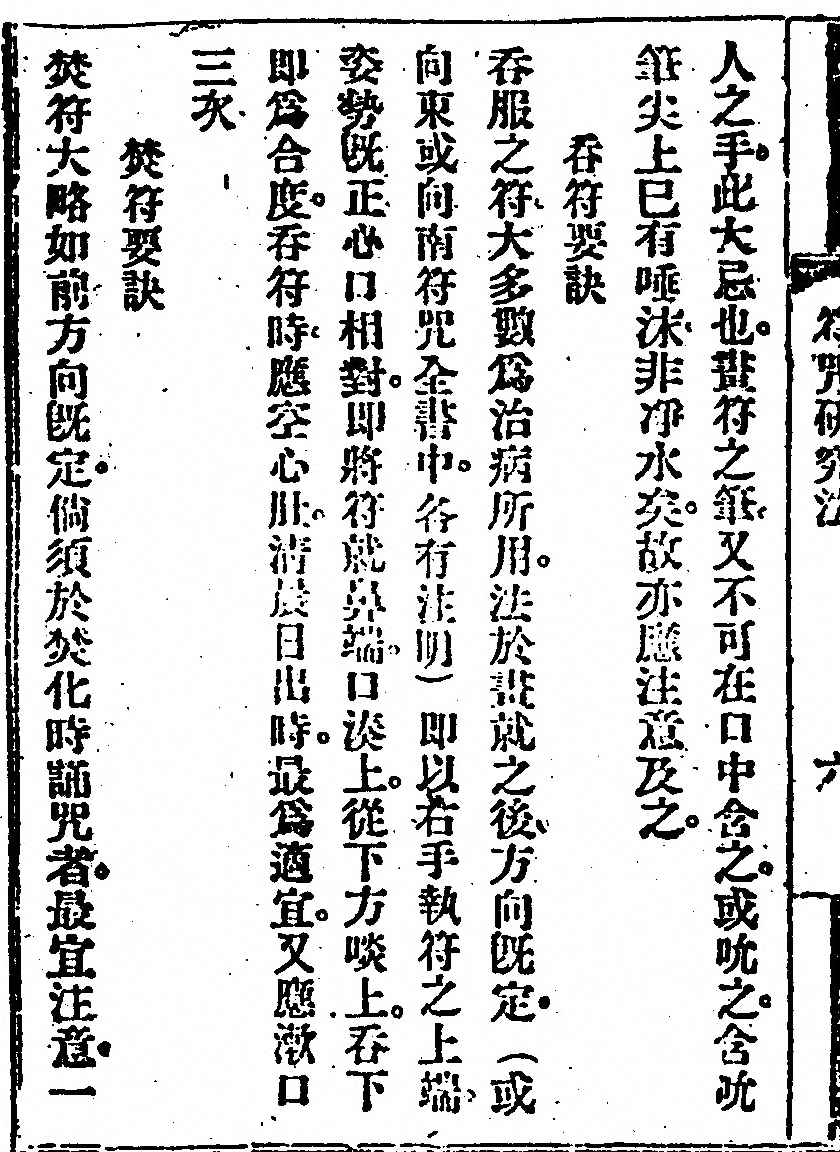 符咒研究法 六
人之手。此大忌也。畫符之筆、又不可在口中含之。或吮之。含吮
筆尖上已有唾沫、非凈水矣。故亦應注意及之。
吞符要訣
吞服之符、大多數爲治病所用。法於畫就之後、方向既定。（或
向東或向南符咒全書中。各有注明）即以右手執符之上端、
姿勢既正心口相對。即將符就鼻端。口湊上。從下方啖上。吞下
即爲合度。吞符時、應空心肚。清晨日出時。最爲適宜。又應漱口
三次
焚符要訣
焚符大略如前方向既定。倘須於焚化時誦咒者。最宜注意。一